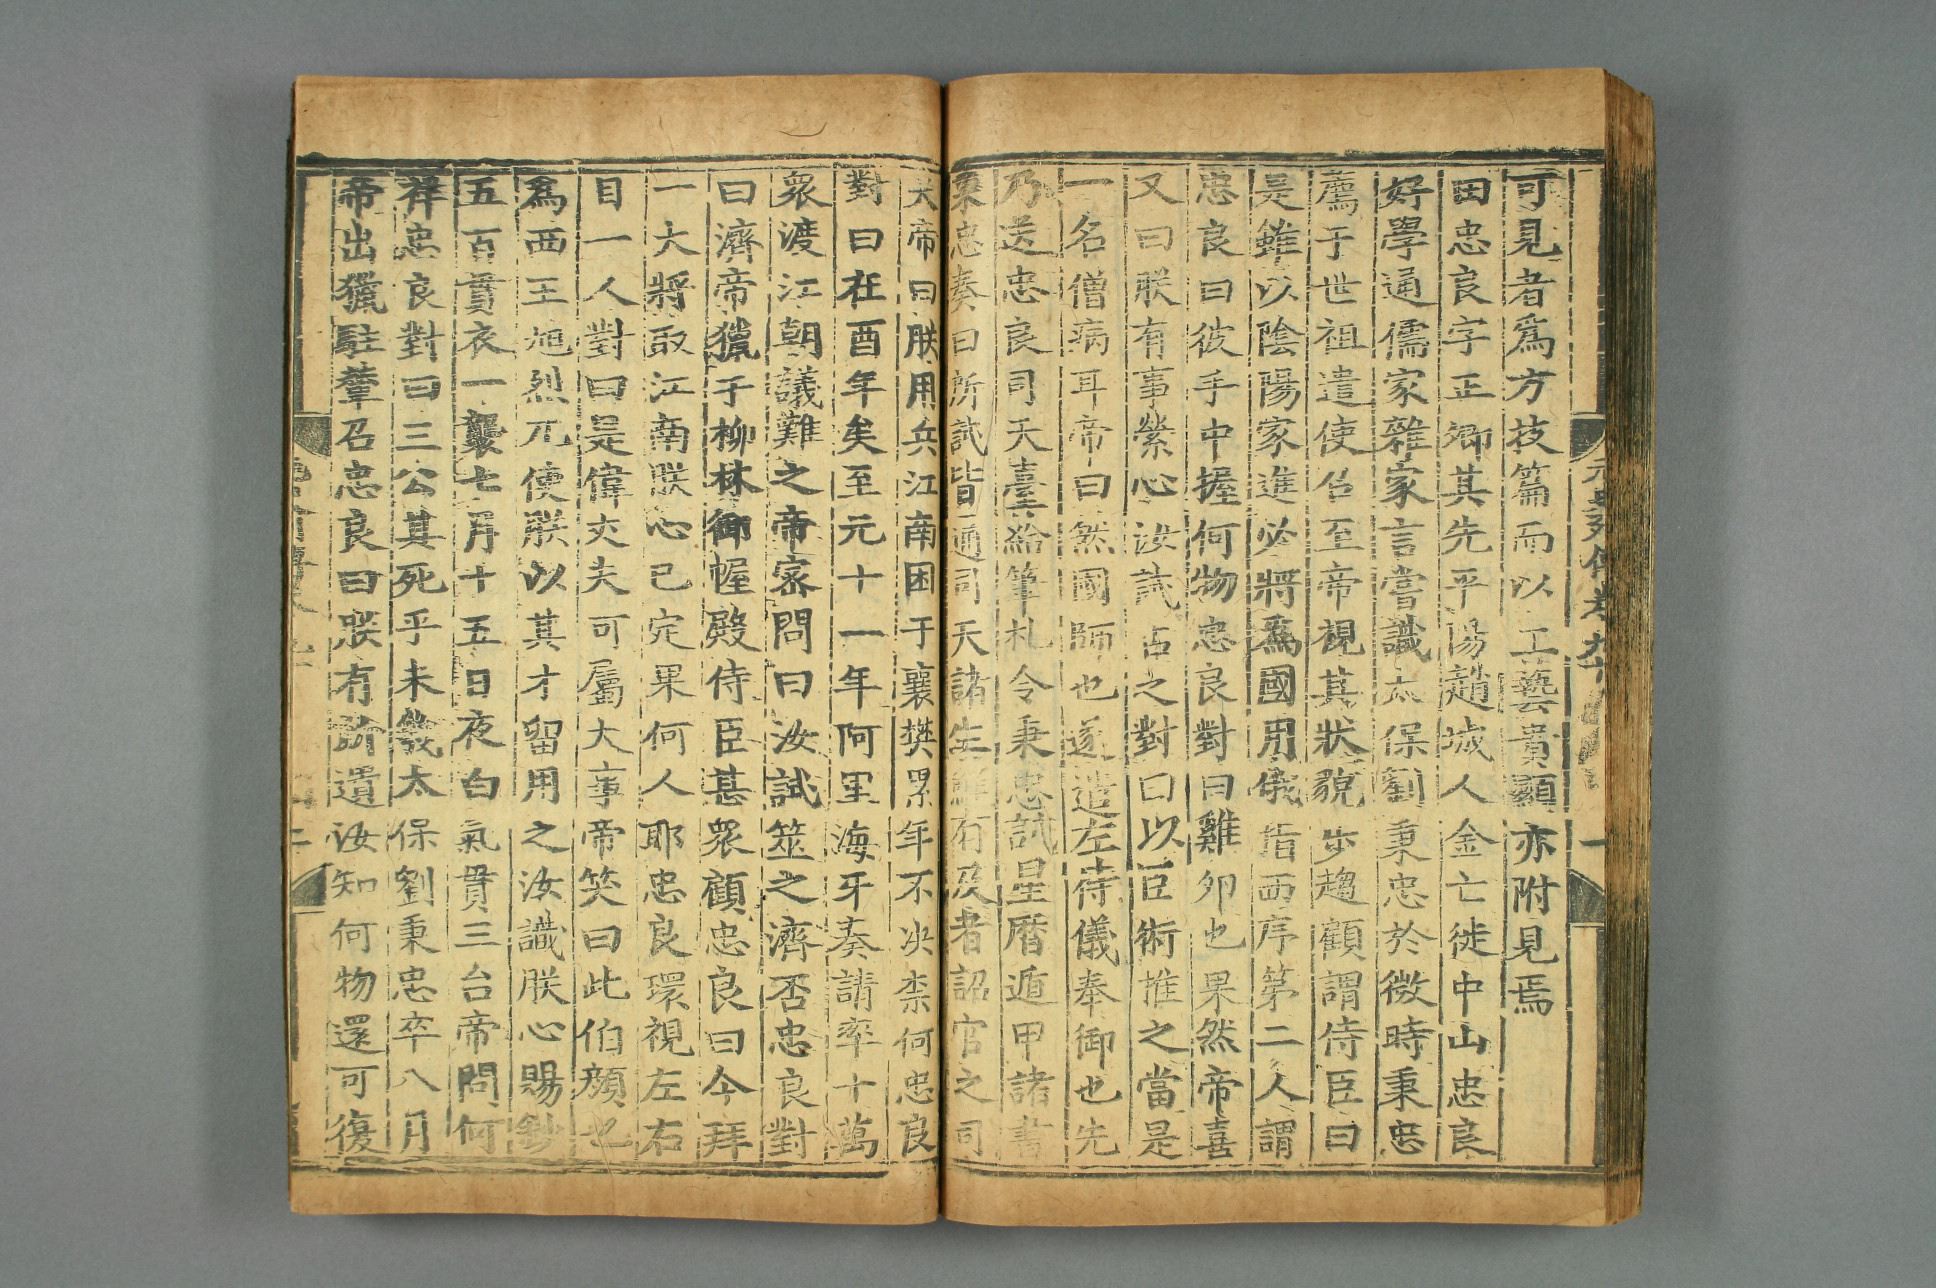 元史列傳卷九十 一
可見者爲方技篇而以工藝貴顯亦附見焉
田忠良字正卿其先平陽趙城人金亡徙中山忠良
好學通儒家雜家言嘗識太保劉秉忠於微時秉忠
薦于世祖遣使召至帝視其狀貌步趨顧謂侍臣曰
是雖以陰陽家進必將爲國用俄指西序第二人謂
忠良曰彼手中握何物忠良對曰雞卵也果然帝喜
又曰朕有事縈心汝試占之對曰以臣術推之當是
一名僧病耳帝曰然國師也遂遣左侍儀奉御也先
乃送忠良司天臺給筆札令秉忠試星曆遁甲諸書
秉忠奏曰所試皆通司天諸生鮮有及者詔官之司
天帝曰朕用兵江南困于襄樊累年不决柰何忠良
對曰在酉年矣至元十一年阿里海牙奏請率十萬
衆渡江朝議難之帝密問曰汝試筮之濟否忠良對
曰濟帝獵于柳林御幄殿侍臣甚衆顧忠良曰今拜
一大將取江南朕心已定果何人耶忠良環視左右
目一人對曰是偉丈夫可屬大事帝笑曰此伯顏也
爲西王旭烈兀使朕以其才留用之汝識朕心賜鈔
五百貫衣一襲七月十五日夜白氣貫三台帝問何
祥忠良對曰三公其死乎未幾太保劉秉忠卒八月
帝出獵駐輦召忠良曰朕有所遺汝知何物還可復